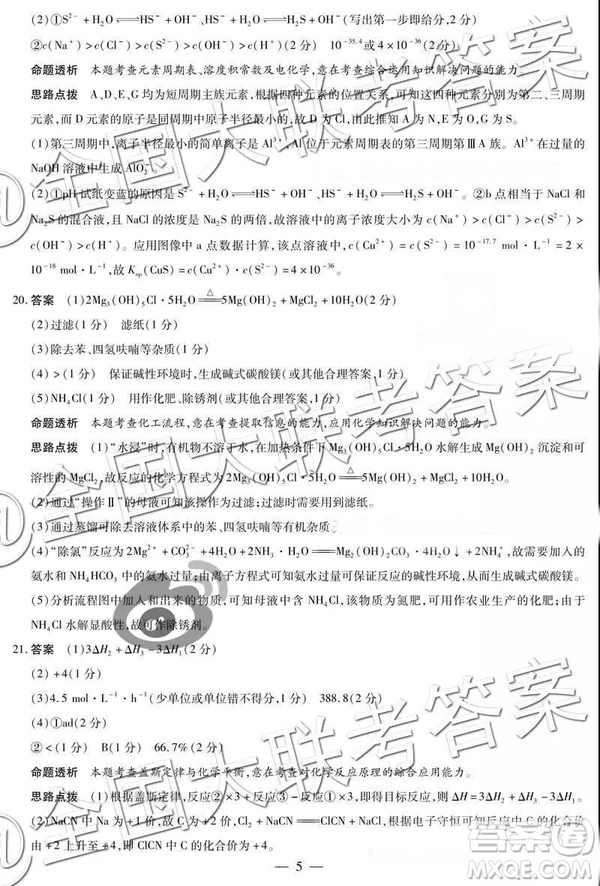 (2)①S²⁻＋H₂O⇌HS⁻＋OH⁻、HS⁻＋H₂O⇌H₂S＋OH⁻(写出第一步即给分,2分)
②c(Na⁺)＞c(Cl⁻)＞c(S²⁻)＞c(OH⁻)(2分) 10⁻³⁵·⁴或4×10⁻³⁶(2分)
命题透析 本题考查元素周期表、溶度积常数及电化学,意在考查综合运用知识解决问题的能力。
思路点拨 A、D、E、G均为短周期主族元素,根据四种元素的位置关系,可知这四种元素分别为第二、三周期
元素,而D元素的原子是同周期中原子半径最小的,故D为Cl,由此可推知A为N,E为Al,G为S。
(1)第三周期中,离子半径最小的简单离子是Al³⁺,Al位于元素周期表的第三周期第ⅢA族。Al³⁺在过量的
NaOH溶液中生成AlO₂⁻。
(2)①pH试纸变蓝的原因是S²⁻＋H₂O⇌HS⁻＋OH⁻、HS⁻＋H₂O⇌H₂S＋OH⁻。②b点相当于NaCl和
Na₂S的混合液,且NaCl的浓度是Na₂S的两倍,故溶液中的离子浓度大小关系为c(Na⁺)＞c(Cl⁻)＞
c(S²⁻)＞c(OH⁻)。应用图像中a点数据计算,该点溶液中,c(Cu²⁺)＝c(S²⁻)＝10⁻¹⁷·⁷mol·L⁻¹＝2×
10⁻¹⁸mol·L⁻¹,故Ksp(CuS)＝c(Cu²⁺)·c(S²⁻)＝4×10⁻³⁶。
20.答案 (1)2Mg₃(OH)₅Cl·5H₂O=△=5Mg(OH)₂＋MgCl₂＋10H₂O(2分)
(2)过滤(1分) 滤纸(1分)
(3)除去苯、四氢呋喃等杂质(1分)
(4)＞(1分) 保证碱性环境时,生成碱式碳酸镁(或其他合理答案,1分)
(5)NH₄Cl(1分) 用作化肥、除锈剂(或其他合理答案,1分)
命题透析 本题考查化工流程,意在考查提取信息的能力,应用化学知识解决问题的能力。
思路点拨 (1)“水浸”时,有机物不溶于水,在加热条件下Mg₃(OH)₅Cl·5H₂O水解生成Mg(OH)₂沉淀和可
溶性的MgCl₂,故反应的化学方程式为2Mg₃(OH)₅Cl·5H₂O=△=5Mg(OH)₂＋MgCl₂＋10H₂O。
(2)通过“操作Ⅱ”的母液可知该操作为过滤;过滤时需要用到滤纸。
(3)通过蒸馏可除去溶液体系中的苯、四氢呋喃等有机杂质。
(4)“除氯”反应为2Mg²⁺＋CO₃²⁻＋2NH₃·H₂O＋4H₂O＝Mg(OH)₂CO₃·4H₂O↓＋2NH₄⁺,所以需要加入的
氨水和NH₄HCO₃中的氨水过量;由离子方程式可知氨水过量可保证反应的碱性环境,可生成碱式碳酸镁。
(5)分析流程图中加入和出来的物质,可知母液中含NH₄Cl,该物质为氮肥,可用作农业生产中的化肥;由于
NH₄Cl水解显酸性,故可作除锈剂。
21.答案 (1)3ΔH₂＋ΔH₃－3ΔH₁(1分)
(2)＋4(1分)
(3)4.5 mol·L⁻¹·h⁻¹(少单位或单位错不得分,1分) 388.8(2分)
(4)①ad(2分)
②＜(1分) B(1分) 66.7%(2分)
命题透析 本题考查盖斯定律与化学平衡,意在考查对化学反应原理的综合应用能力。
思路点拨 (1)根据盖斯定律,反应②×3＋反应③－反应①×3,即得目标反应,则ΔH＝3ΔH₂＋ΔH₃－3ΔH₁。
(2)NaCN中N为－3价,Na为＋1价,则C的化合价为＋2,根据电子守恒可知反应中C的化合价
由＋2上升至＋4,即ClCN中C的化合价为＋4。
— 5 —
@全国大联考答案
@全国大联考答案
@全国大联考答案
答案圈
MXQE.COM